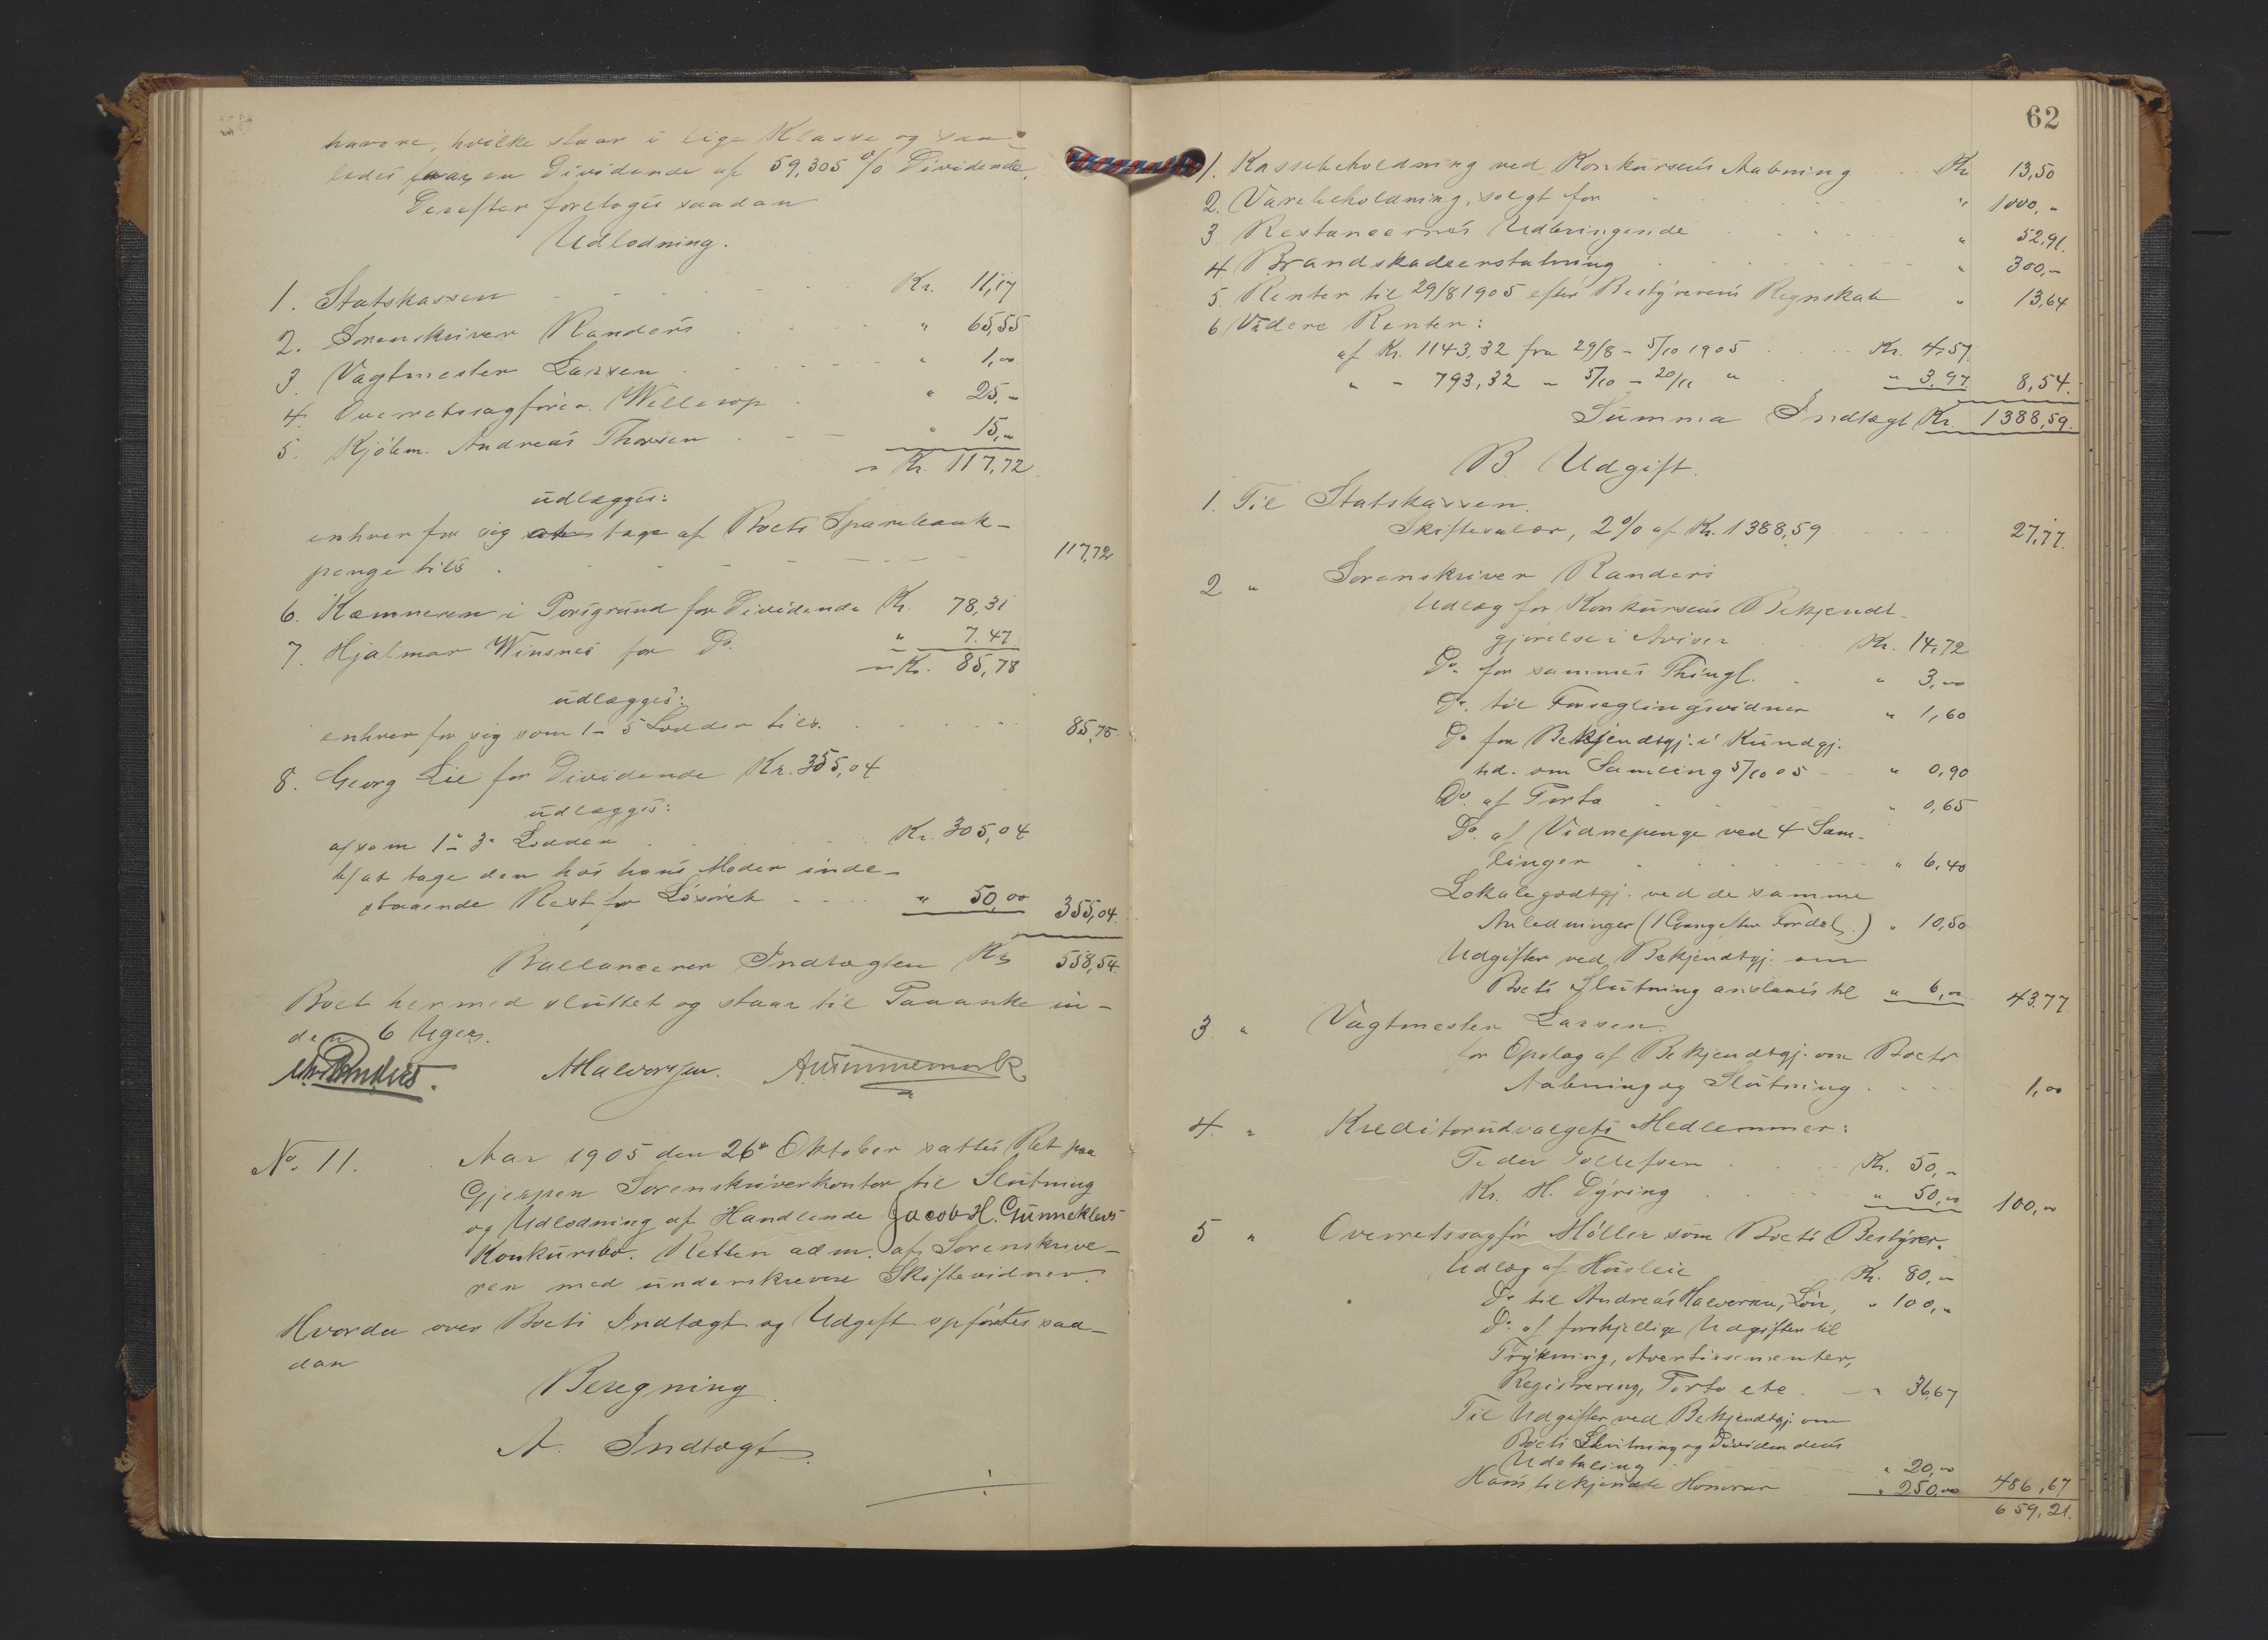 havere, hvilke staar i lige Klasse og saa-
ledes faar en Dividende af 59,305 % Dividende.
Derefter foretoges saadan
Udlodning.
1. Statskassen Kr. 11,17
2. Sorenskriver Randers " 65,55
3. Vagtmester Larsen " 1,00
4. Overretssagfører Willerop " 25,-
5. Kjøbm. Andreas Thorsen " 15,"
= Kr. 117,72
udlægges:
enhver for sig at tage af Boets Sparebank-
penge tils. 117,72
6. Kæmneren i Porsgrund for Dividende Kr. 78,31
7. Hjalmar Winsnes for Do. " 7.47
= Kr. 85,78
udlægges:
enhver for sig som 1-5 Lodder tils. 85,78
8. Georg Lie for Dividende Kr. 355,04
udlægges:
a/ som 1"-3" Lodder Kr. 305,04
b/ at tage den hos hans Moder inde-
staaende Rest for Løsøre " 50,00 355,04.
Ballancerer Indtægten Kr 558,54
Boet hermed sluttet og staar til Paaanke in-
den 6 Uger.
Randers. AHalvorsen.
No. 11. Aar 1905 den 26" Oktober sattes Ret paa
Gjerpen Sorenskriverkontor til Slutning
og Udlodning af Handlende Jacob H. Gunneklevs
Konkursbo. Retten adm. af Sorenskrive-
ren med underskrevne Skiftevidner.
Hvorda over Boets Indtægt og Udgift opførtes saa-
dan
Beregning
A. Indtægt.
62
1. Kassebeholdning ved Konkursens Aabning Kr 13,50
2. Varebeholdning, solgt for " 1000,-
3 Restancernes Udbringende " 52,91.
4 Brandskadeerstatning " 300,-
5 Renter til 29/8 1905 efter Bestyrerens Regnskab " 13,64
6 Videre Renter:
af Kr. 1143,32 fra 29/8 - 5/10 1905 Kr. 4,57
" - 793,32 " 5/10 - 20/11 " " 3,97 8,54.
Summa Indtægt Kr. 1388,59.
B. Udgift.
1. Til Statskassen.
Skiftesalær, 2% af Kr. 1388,59 27,77.
2 " Sorenskriver Randers
Udlæg for Konkursens Bekjendt-
gjørelse i Aviser Kr. 14,72
Do. for sammes Thingl. " 3,00
Do. til Forseglingsvidner " 1,60
Do for Bekjendtgj. i Kundgj.
tid. om Samling 5/10 05 " 0,90
Do. af Porto " 0,65
Do. af Vidnepenge ved 4 Sam-
linger " 6,40
Lokalegodtgj. ved de samme
Anledninger (1 Gang efter Fordel.) " 10,50
Udgifter ved Bekjendtgj. om
Boets Slutning anslaaes til " 6,00 43,77
3 " Vagtmester Larsen.
for Opslag af Bekjendtgj. om Boets
Aabning og Slutning 1,00
4. " Kreditorudvalgets Medlemmer:
Peder Tollefsen Kr. 50,-
Kr. H. Dyring " 50,00 100,00
5 " Overretssagfør Møller som Boets Bestyrer.
Udlæg af Husleie Kr. 80,-
Do til Andreas Halvorsen, Løn, " 100,-
Do. af forskjellige Udgifter til
Trykning, Avertissementer,
Registrering, Porto etc. " 36,67
Til Udgifter ved Bekjendtgj. om
Boets Slutning og Dividendens
Udetaling " 20,00
Hans tilkjendte Honorar " 250,00 486,67
659,21.